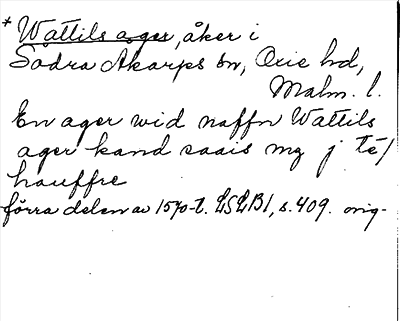 * Wattils ager, åker i
Södra Åkarps sn, Oxie hd,
Malm. l.
En ager wid naffn Wattils
ager kand saais mz j té/
hauffre
förra delen av 1570-t. LSLB1, s. 409. orig-